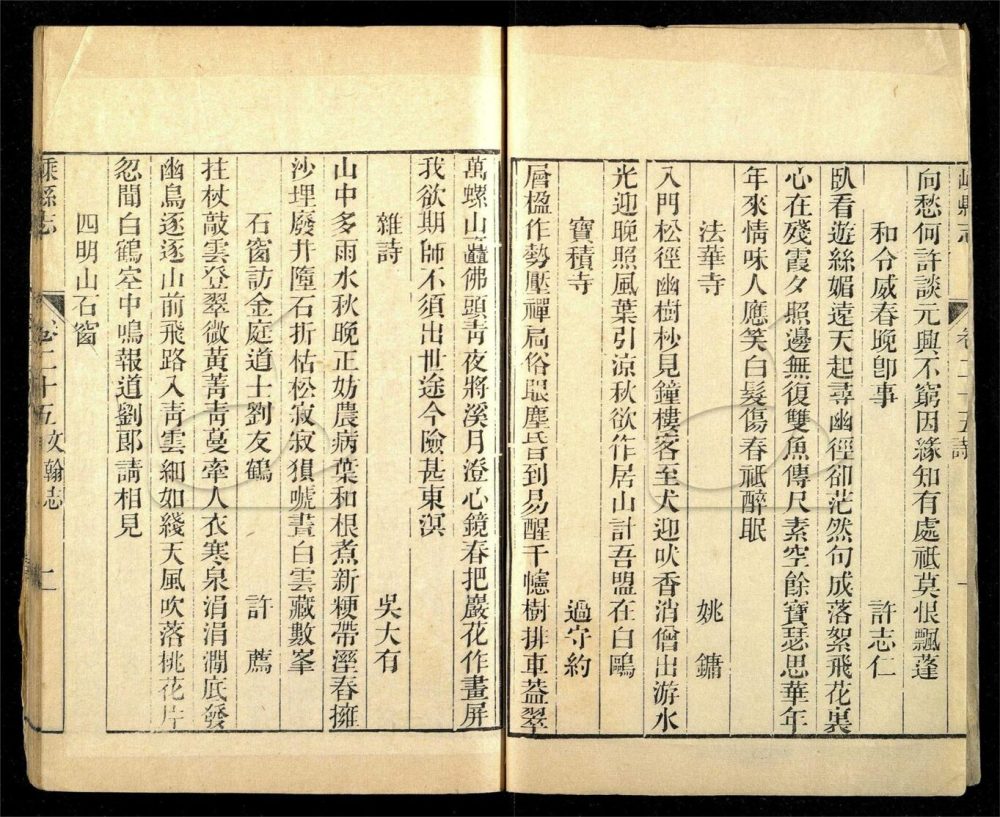 嵊縣志
卷二十五詩
向愁何許談元興不窮因緣知有處祇莫恨飄蓬
和令威春晚卽事 許志仁
臥看遊絲媚遠天起尋幽徑卻茫然句成落絮飛花裏
心在殘霞夕照邊無復雙魚傳尺素空餘寶瑟思華年
年來情味人應笑白髮傷春祇醉眠
法華寺 姚鏞
入門松徑幽樹杪見鐘樓客至犬迎吠香消僧出游水
光迎晚照風葉引涼秋欲作居山計吾盟在白鷗
寶積寺 過守約
層楹作勢壓禪局俗眼塵昏到易醒千幢樹排車蓋翠
萬螺山矗佛頭靑夜將溪月澄心鏡春把巖花作畫屏
我欲期師不須出世途今險甚東溟
雜詩 吳大有
山中多雨水秋晚正妨農病葉和根煮新粳帶溼舂擁
沙埋廢井墮石折枯松寂寂猿號晝白雲藏數峯
石窗訪金庭道士劉友鶴 許薦
拄杖敲雲登翠微黃菁靑蔓牽人衣寒泉涓涓澗底發
幽鳥逐逐山前飛路入靑雲細如綫天風吹落桃花片
忽聞白鶴空中鳴報道劉郎請相見
四明山石窗
嵊縣志
卷二十五文翰志